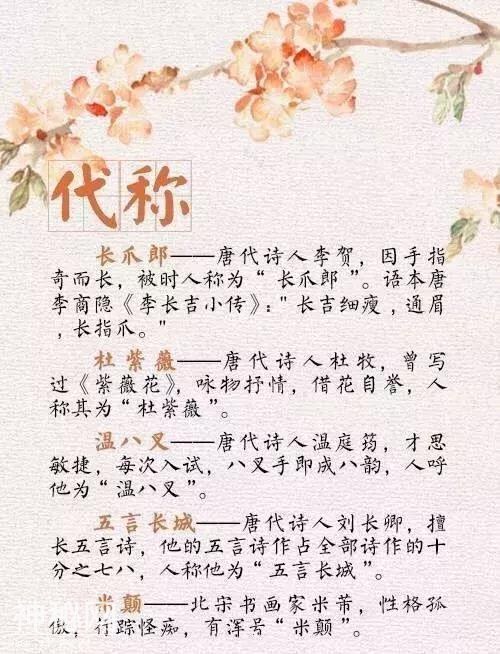 代称
长爪郎——唐代诗人李贺，因手指
奇而长，被时人称为“长爪郎”。语本唐
李商隐《李长吉小传》："长吉细瘦，通眉
，长指爪。"
杜紫薇——唐代诗人杜牧，曾写
过《紫薇花》，咏物抒情，借花自誉，人
称其为“杜紫薇”。
温八叉——唐代诗人温庭筠，才思
敏捷，每次入试，八叉手即成八韵，人呼
他为“温八叉”。
五言长城——唐代诗人刘长卿，擅
长五言诗，他的五言诗作占全部诗作的十
分之七八，人称他为“五言长城”。
米颠——北宋书画家米芾，性格孤
傲，行踪怪痴，有浑号“米颠”。